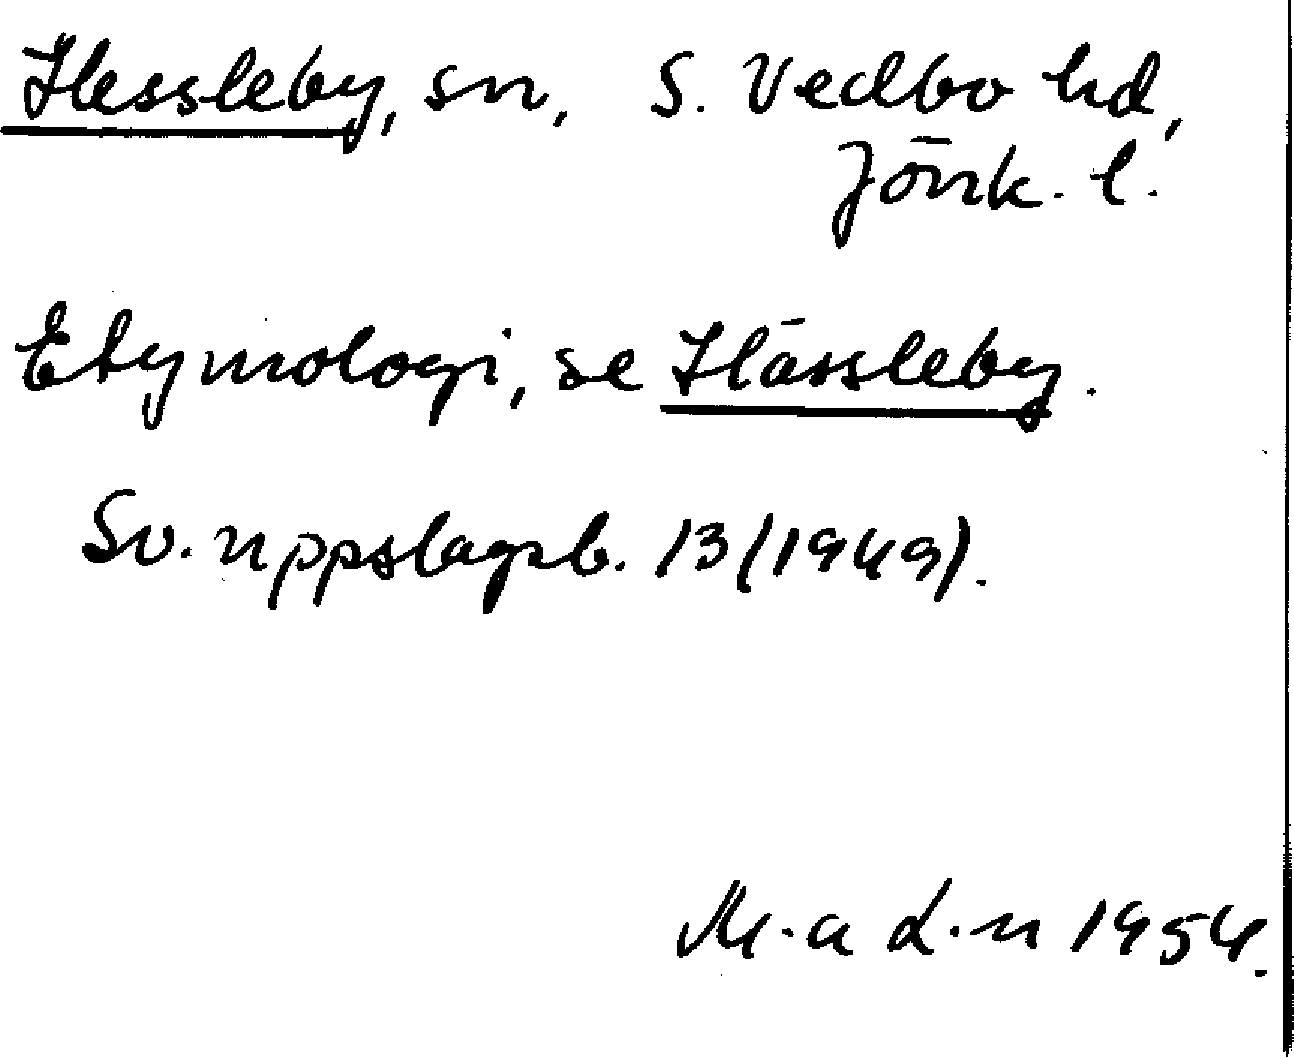 Hessleby, sn, S. Vedbo hd,
Jönk. l.
Etymologi, se Hässleby.
Sv. uppslagsb. 13 (1949).
M.a L.n 1954.